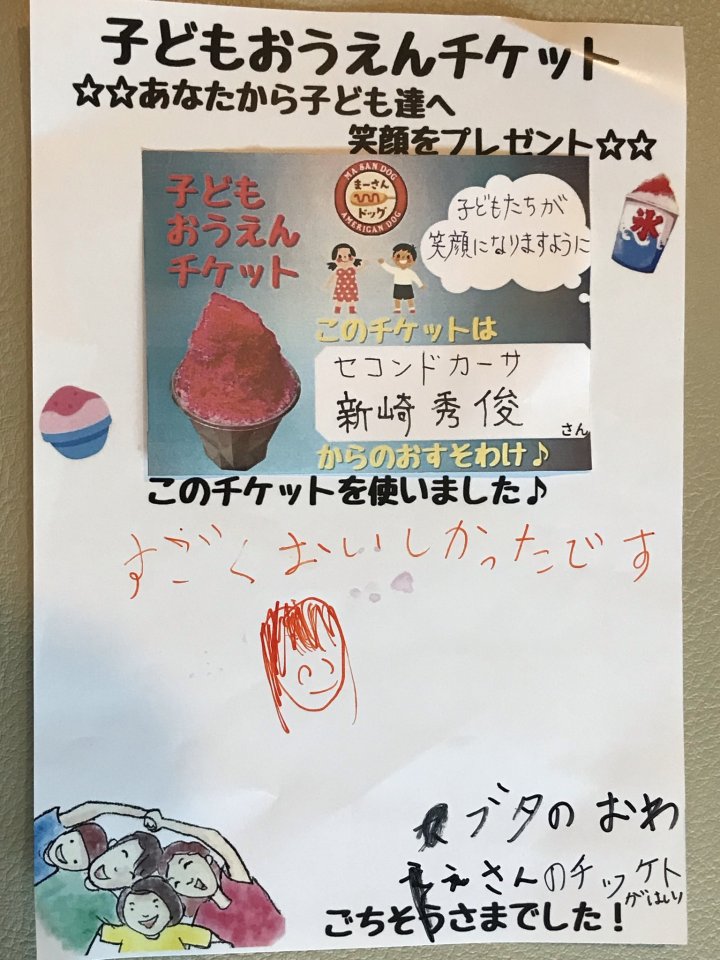 子どもおうえんチケット
☆☆あなたから子ども達へ
笑顔をプレゼント☆☆
子ども
おうえん
チケット
MA SAN DOG
まーさん
ドッグ
AMERICAN DOG
子どもたちが
笑顔になりますように
氷
このチケットは
セコンドカーサ
新崎秀俊
さん
からのおすそわけ♪
このチケットを使いました♪
すごくおいしかったです
ブタの おわ
えさんのチッケト
がほしい
ごちそうさまでした！